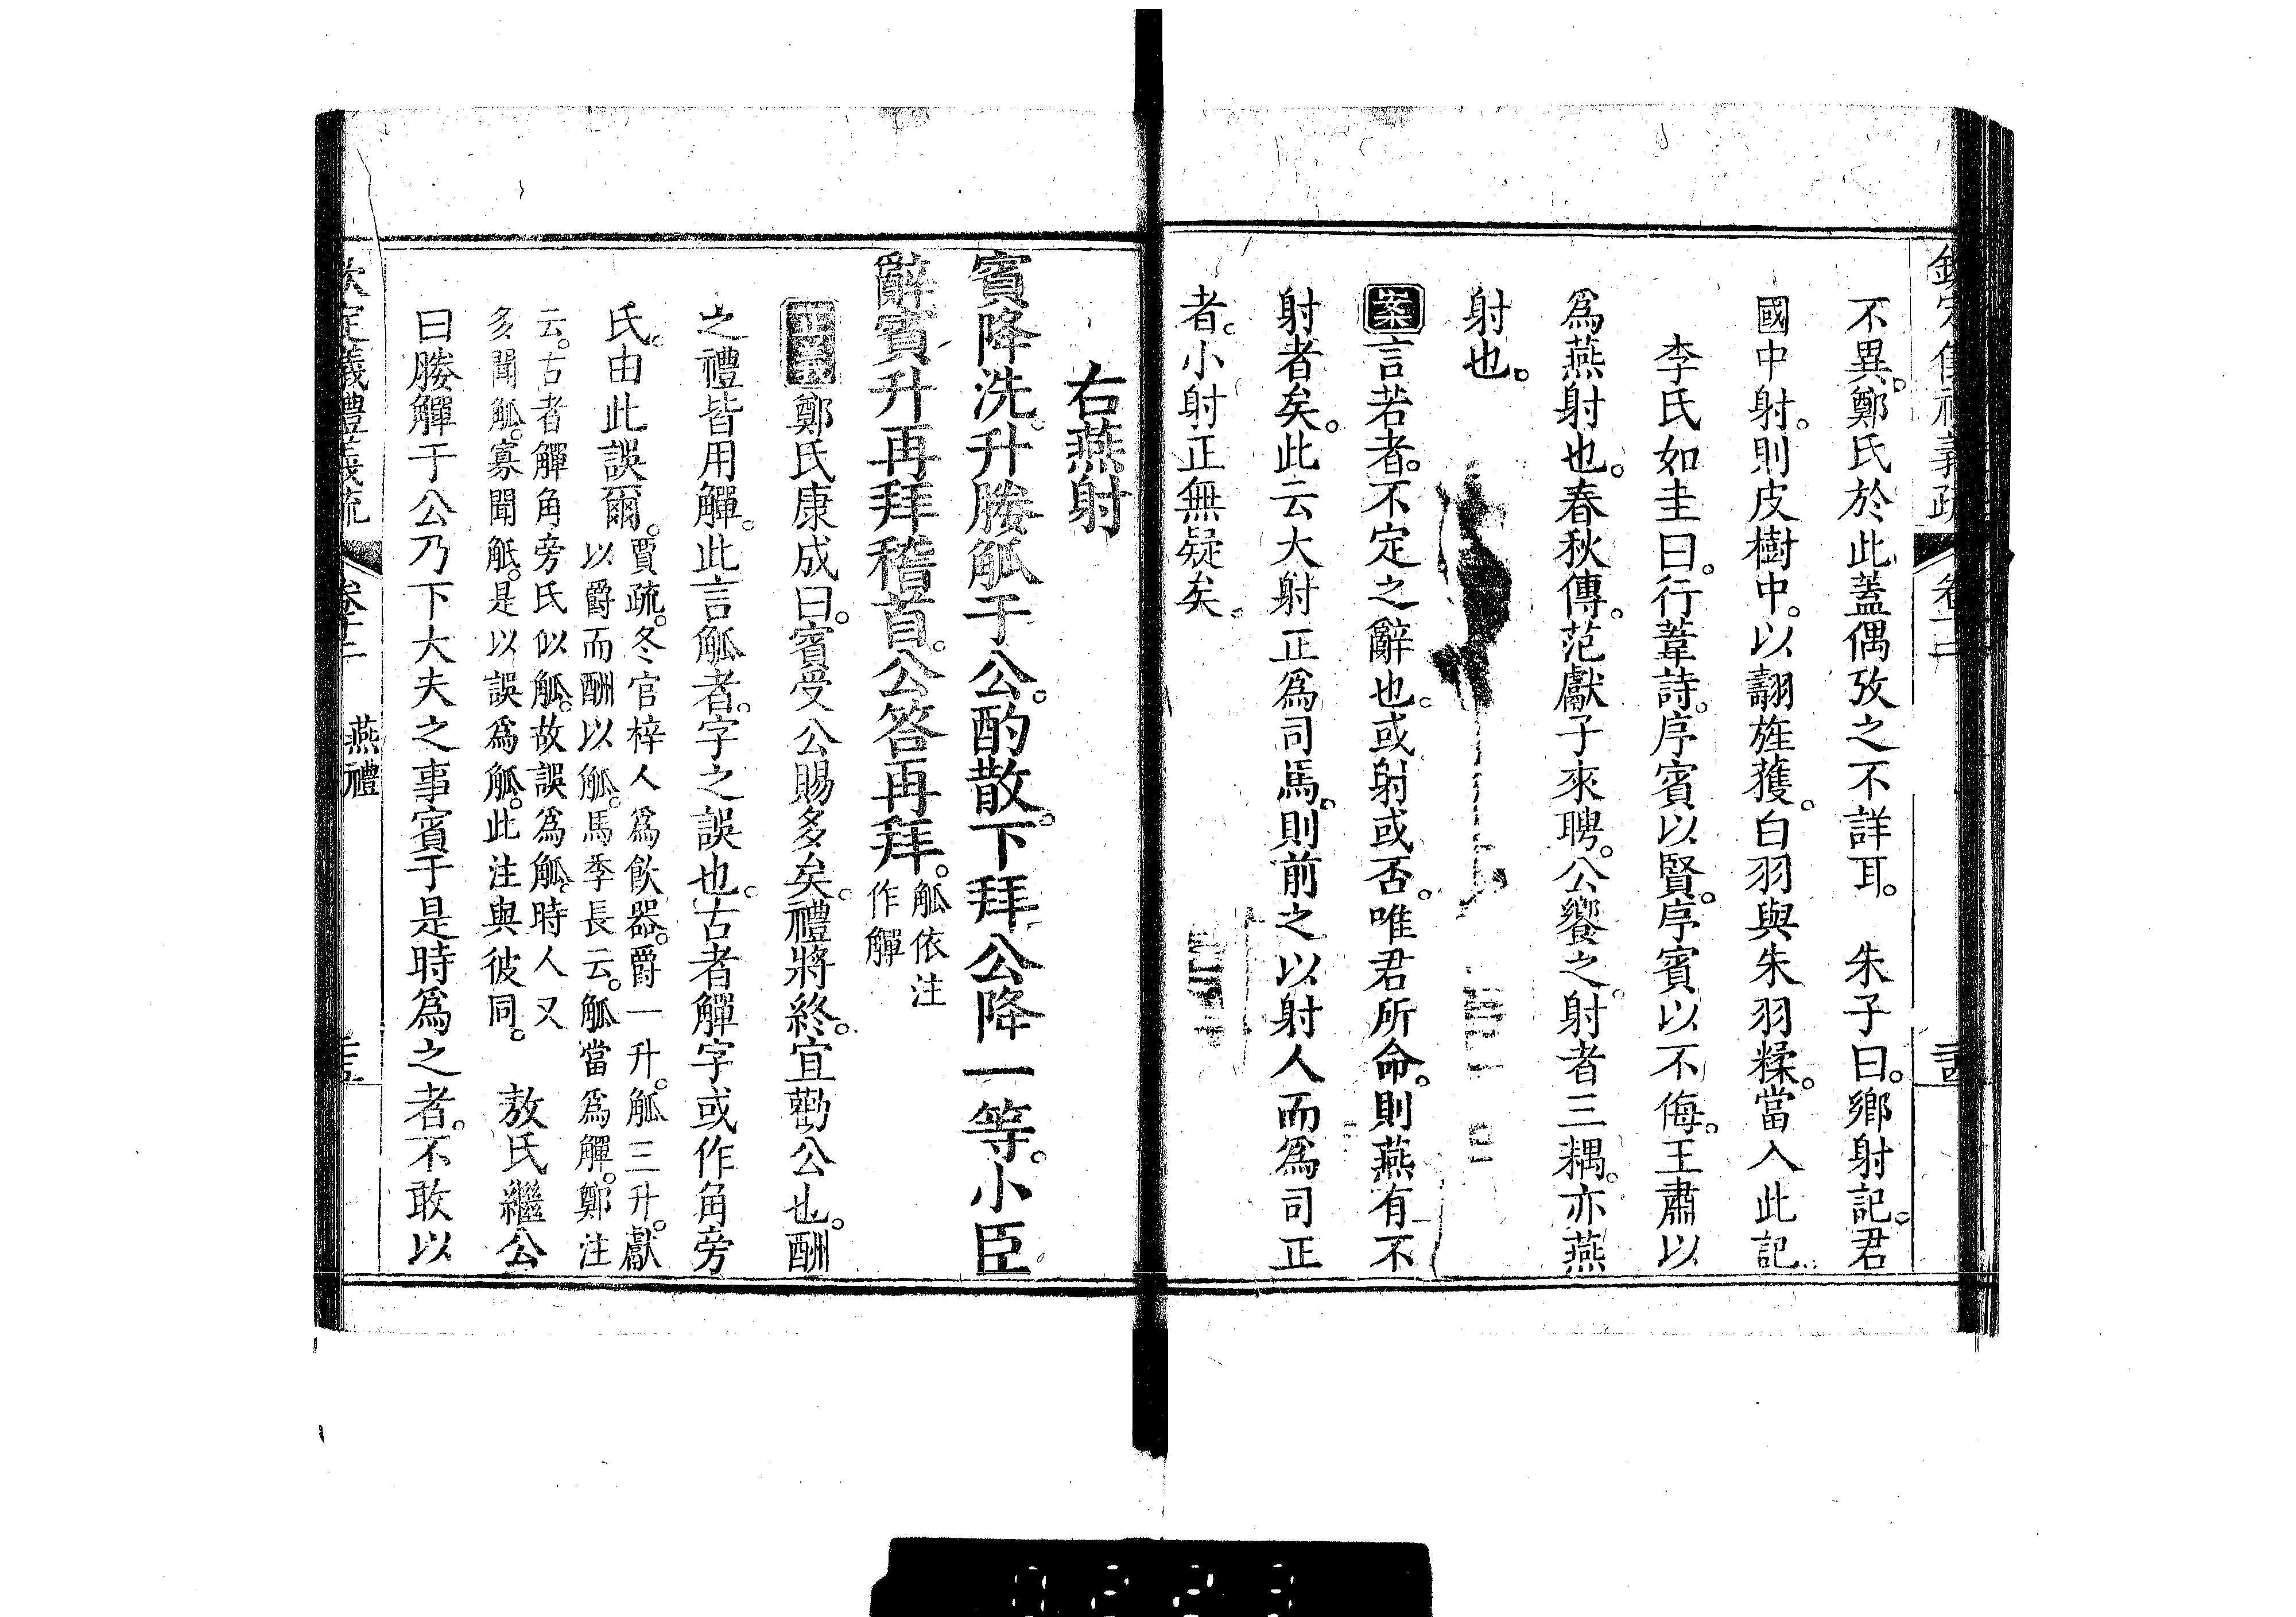 欽定儀禮義疏　卷十二　　　　　　　　
不異。鄭氏於此蓋偶攷之不詳耳。　朱子曰。鄉射記。君
國中射。則皮樹中。以翿旌獲。白羽與朱羽糅。當入此記。
李氏如圭曰。行葦詩。序賓以賢。序賓以不侮。王肅以
爲燕射也。春秋傳。范獻子來聘。公饗之。射者三耦。亦燕
射也。
案言若者。不定之辭也。或射或否。唯君所命。則燕有不
射者矣。此云大射正爲司馬。則前之以射人而爲司正
者。小射正無疑矣。
右燕射
賓降洗。升媵觚于公。酌散。下拜公降一等。小臣
辭。賓升再拜稽首。公答再拜。觚依注
作觶
正義鄭氏康成曰。賓受公賜多矣。禮將終。宜勸公也。酬
之禮皆用觶。此言觚者。字之誤也。古者觶字或作角旁
氏。由此誤爾。賈疏。冬官梓人爲飲器。爵一升。觚三升。獻
以爵而酬以觚。馬季長云。觚當爲觶。鄭注
云。古者觶角旁氏似觚。故誤爲觚。時人又
多聞觚。寡聞觗。是以誤爲觚。此注與彼同。　敖氏繼公
曰媵觶于公乃下大夫之事賓于是時爲之者。不敢以
欽定儀禮義疏　卷十二　燕禮